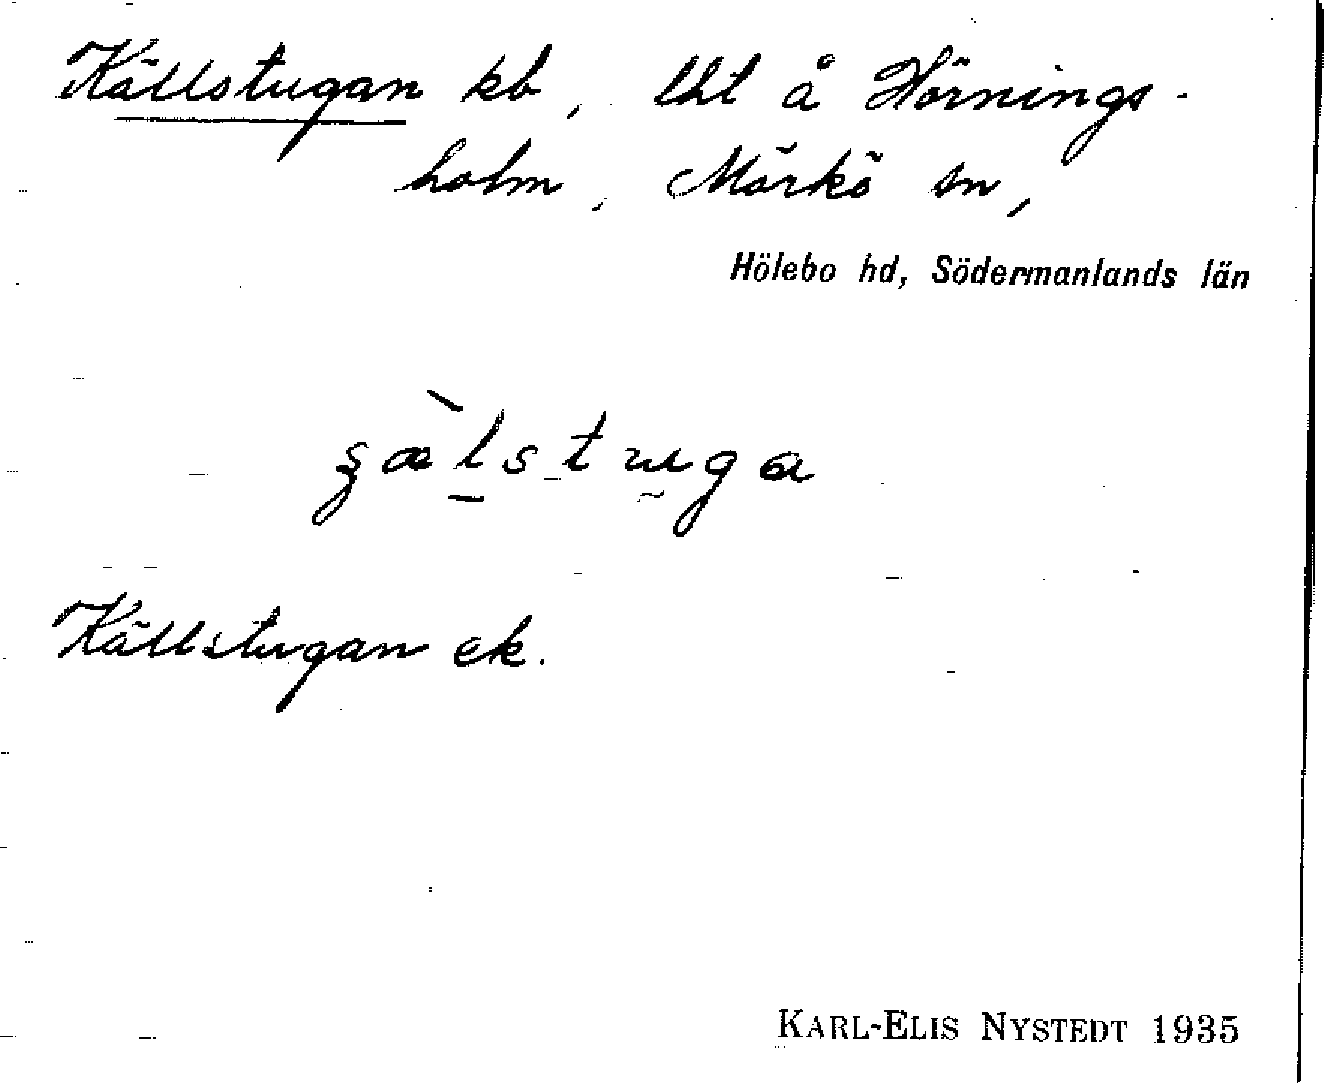 Källstugan kb, lht å Hörnings-
holm, Mörkö sn,
Hölebo hd, Södermanlands län
Källstugan ek.
KARL-ELIS NYSTEDT 1935